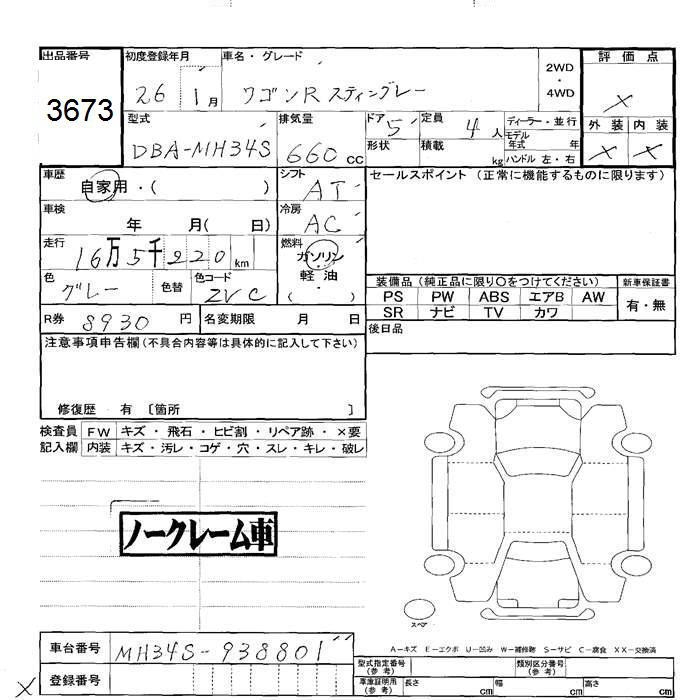 出品番号 初度登録年月 車名・グレード 評価点
3673 26 1月 ワゴンR スティングレー 2WD・4WD ×
型式 排気量 ドア 5 定員 4人 ディーラー・並行 外装 内装
DBA-MH34S 660cc 形状 積載 kg モデル年式 年 ハンドル 左・右 × ×
車歴 自家用・( ) シフト AT セールスポイント (正常に機能するものに限ります)
車検 年 月( 日) 冷房 AC
走行 16万5千220km 燃料 ガソリン・軽油・( )
色 グレー 色替 色コード ZVC
装備品 (純正品に限り〇をつけてください) 新車保証書
PS PW ABS エアB AW 有・無
SR ナビ TV カワ
R券 8930円 名変期限 月 日 後日品
注意事項申告欄(不具合内容等は具体的に記入して下さい)
修復歴 有 〔箇所 〕
検査員記入欄 FW キズ・飛石・ヒビ割・リペア跡・×要
内装 キズ・汚レ・コゲ・穴・スレ・キレ・破レ
ノークレーム車
スペア
A-キズ E-エクボ U-凹み W-補修跡 S-サビ C-腐食 XX-交換済
車台番号 MH34S-938801
型式指定番号(参考) 類別区分番号(参考)
× 登録番号
車庫証明用(参考) 長さ cm 幅 cm 高さ cm